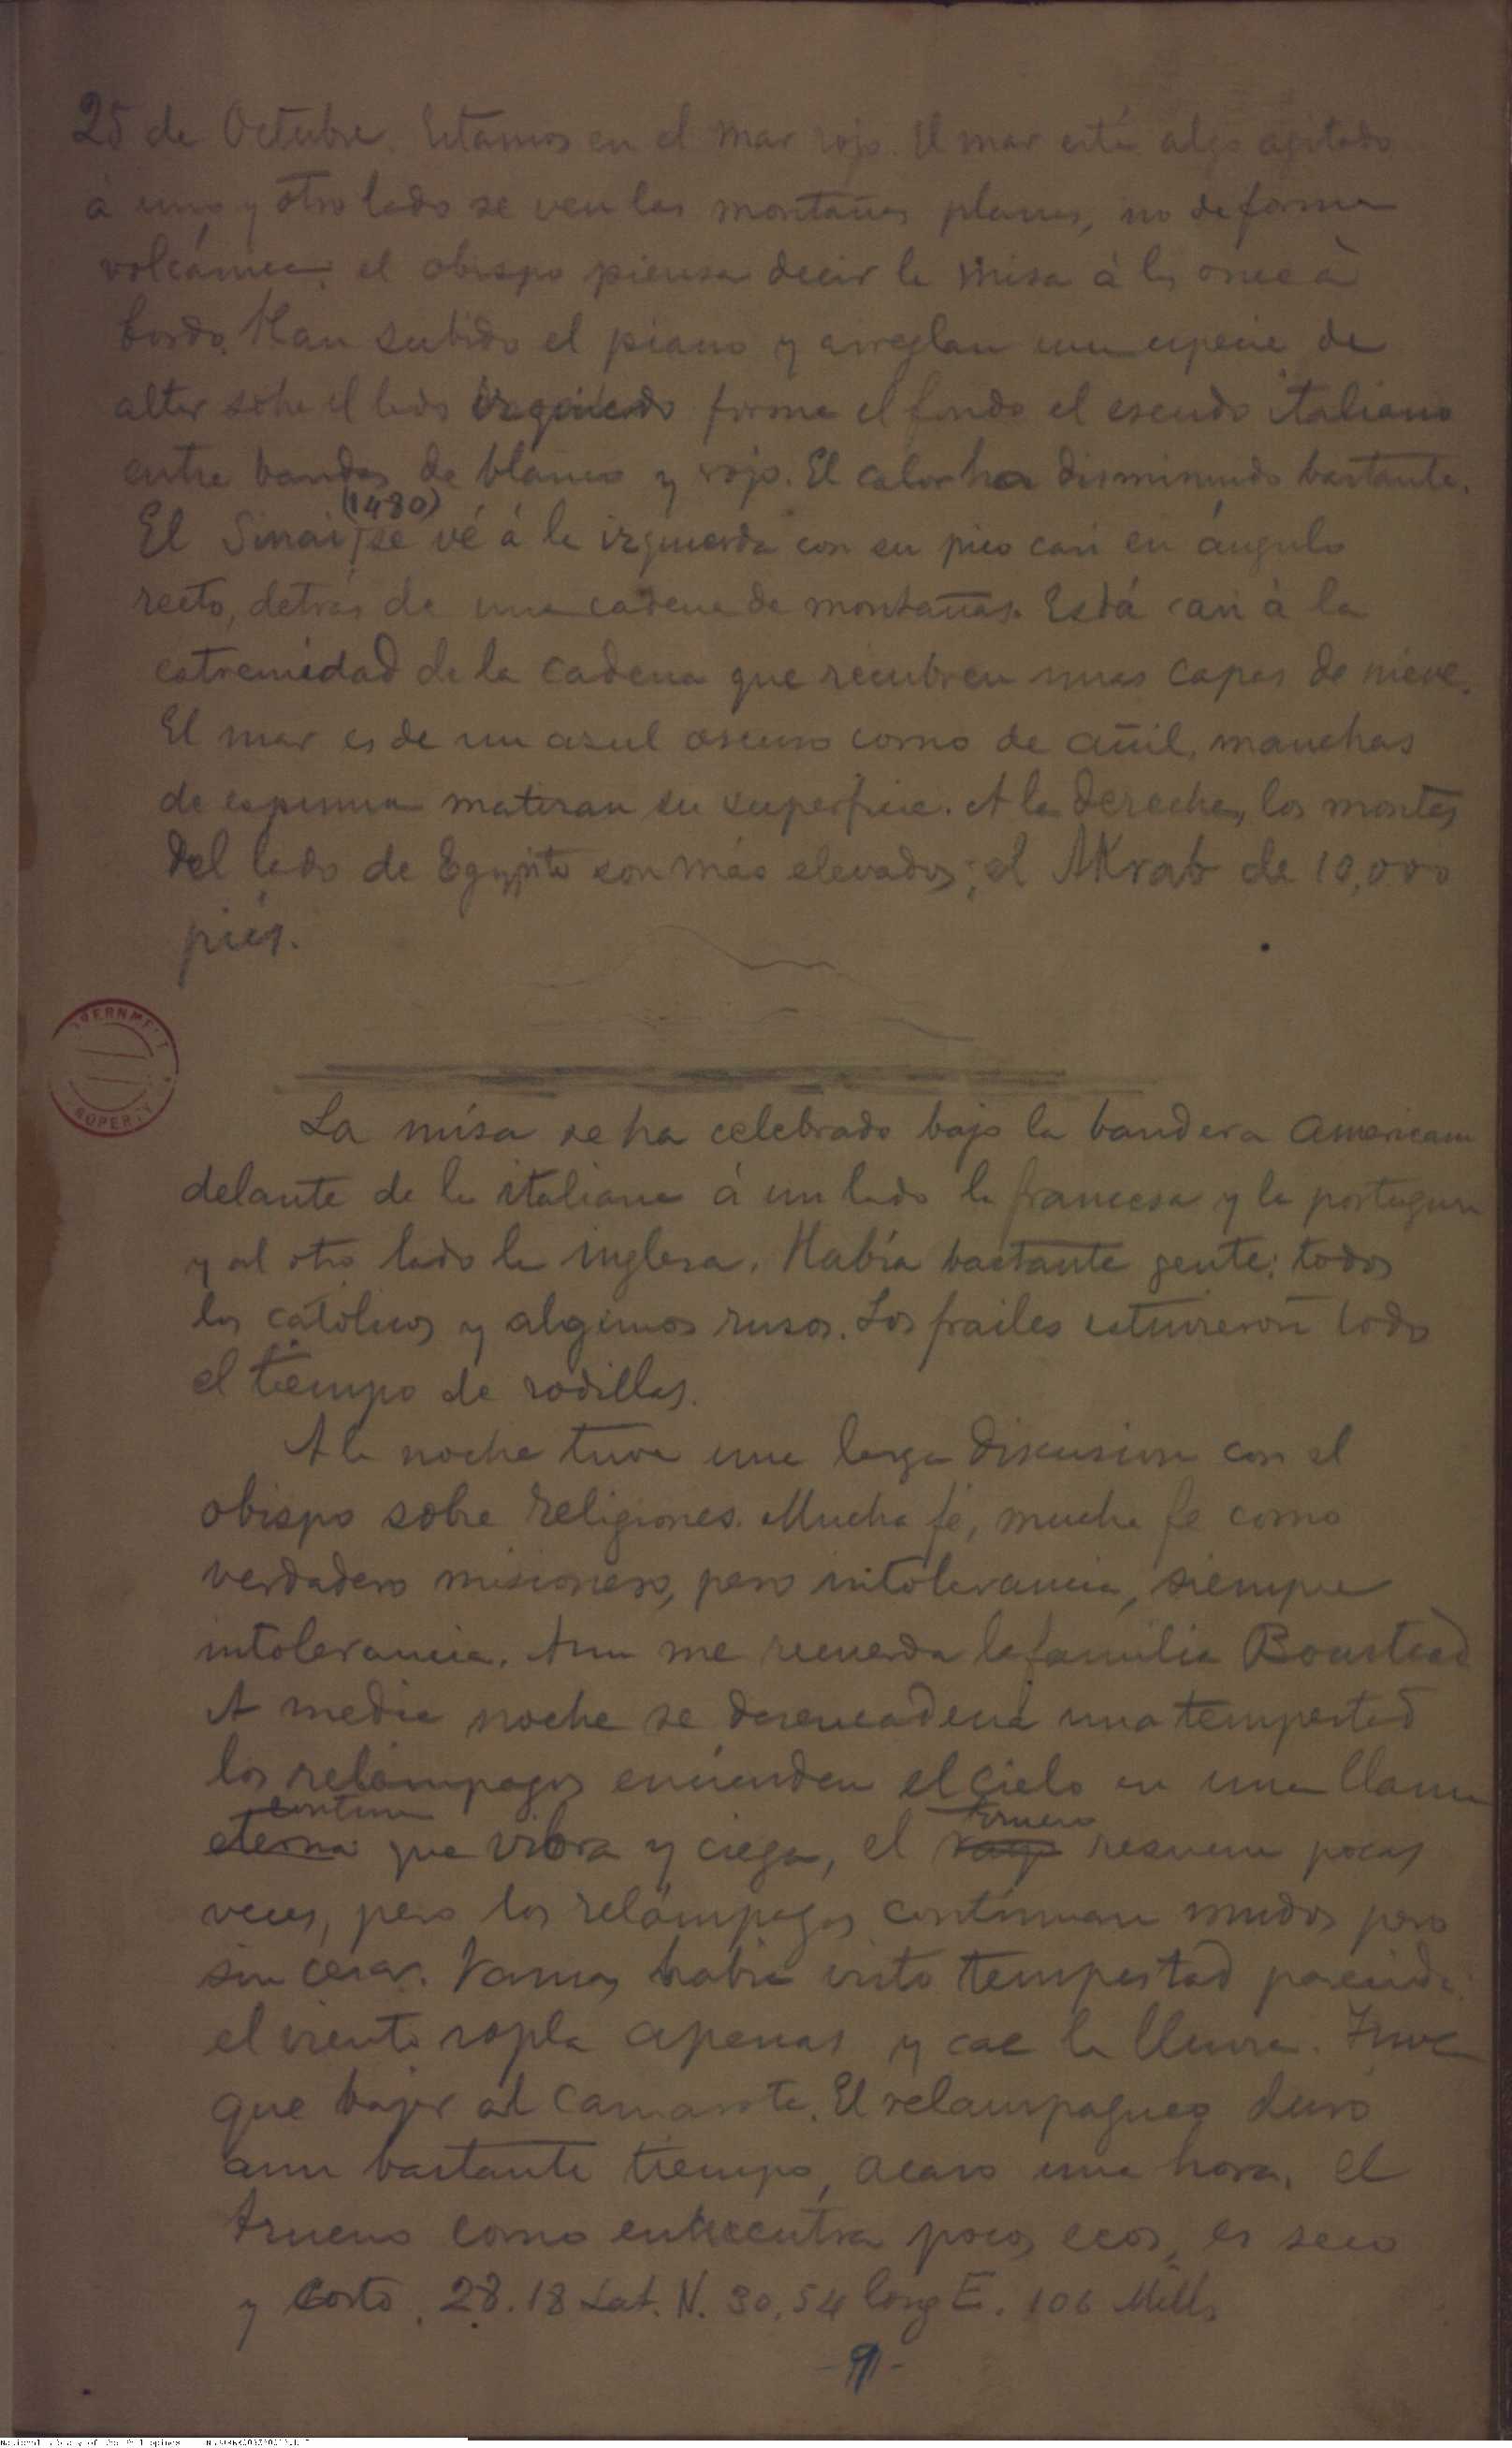 25 de Octubre. Estamos en el mar rojo. El mar está algo agitado
á uno y otro lado se ven las montañas planas, no de forma
volcánica; el obispo piensa decir la misa á las once à
bordo. Han subido el piano y arreglan una especie de
altar sobre el lado izquierdo forma el fondo el escudo italiano
entre bandas de blanco y rojo. El calor ha disminuido bastante.
El Sinai (1480) se vé á la izquierda con su pico casi en ángulo
recto, detrás de una cadena de montañas. Está casi à la
extremidad de la cadena que recubren unas capas de nieve.
El mar es de un azul oscuro como de añil, manchas
de espuma matizan su superficie. A la derecha, los montes
del lado de Egypto son más elevados; el AKrab de 10,000
piés.
GOVERNMENT
PROPERTY
La misa se ha celebrado bajo la bandera Americana
delante de la italiana á un lado la francesa y la portuguesa
y al otro lado la inglesa. Había bastante gente; todos
los católicos y algunos rusos. Los frailes estuvieron todo
el tiempo de rodillas.
A la noche tuve una larga discusion con el
obispo sobre religiones. Mucha fé, mucha fe como
verdadero misionero, pero intolerancia, siempre
intolerancia. Aun me recuerda la familia Boustead
A media noche se desencadena una tempestad
los relámpagos encienden el cielo en una llama
continua
eterna que vibra y ciega, el trueno resuena pocas
veces, pero los relámpagos continuan mudos pero
sin cesar. Jamas habia visto tempestad parecida
el viento sopla apenas y cae la lluvia. Tuve
que bajar al camarote. El relampagueo duró
aun bastante tiempo, acaso una hora. El
trueno como encuentra pocos ecos, es seco
y corto. 28.18 Lat. N. 30,54 long E. 106 Mills
-9-
National Library of the Philippines